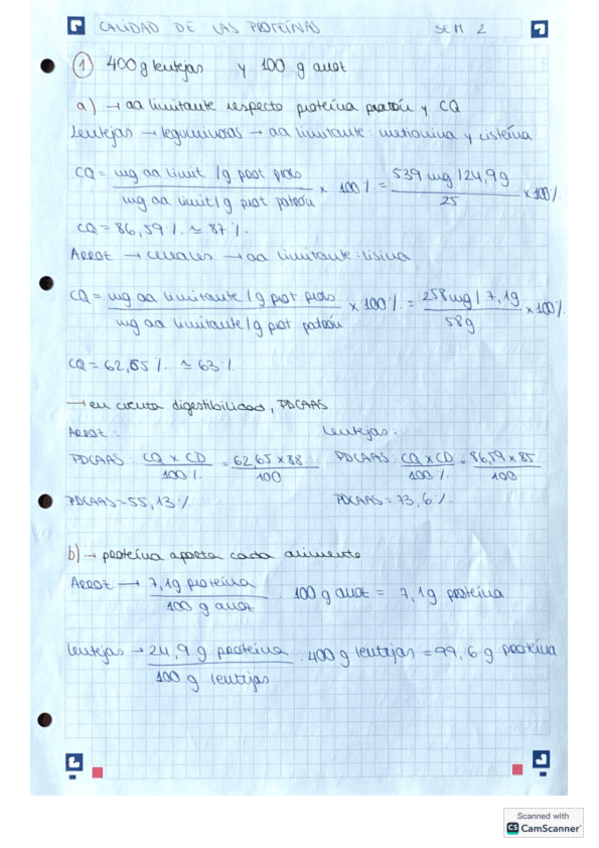 CALIDAD DE LAS PROTEÍNAS SEM 2
① 400g lentejas y 100 g arroz
a) → aa limitante respecto proteína patrón y CQ
Lentejas → leguminosas → aa limitante: metionina y cisteína
CQ = mg aa limit /g prot prob / mg aa limit/g prot patrón × 100 % = 539 mg /24,9g / 25 × 100 %
CQ = 86,59 % ≃ 87 %
Arroz → cereales → aa limitante: lisina
CQ = mg aa limitante /g prot prob / mg aa limitante/g prot patrón × 100 % = 258mg / 7,1g / 58g × 100 %
CQ = 62,65 % ≃ 63 %
→ en cuenta digestibilidad, PDCAAS
Arroz: Lentejas:
PDCAAS: CQ × CD / 100 % = 62,65 × 88 / 100 PDCAAS: CQ × CD / 100 % = 86,59 × 85 / 100
PDCAAS = 55,13 % PDCAAS = 73,6 %
b) → proteína aporta cada alimento
Arroz → 7,1g proteína / 100 g arroz · 100 g arroz = 7,1g proteína
Lentejas → 24,9 g proteína / 100 g lentejas · 400 g lentejas = 99,6 g proteína
Scanned with
CS CamScanner